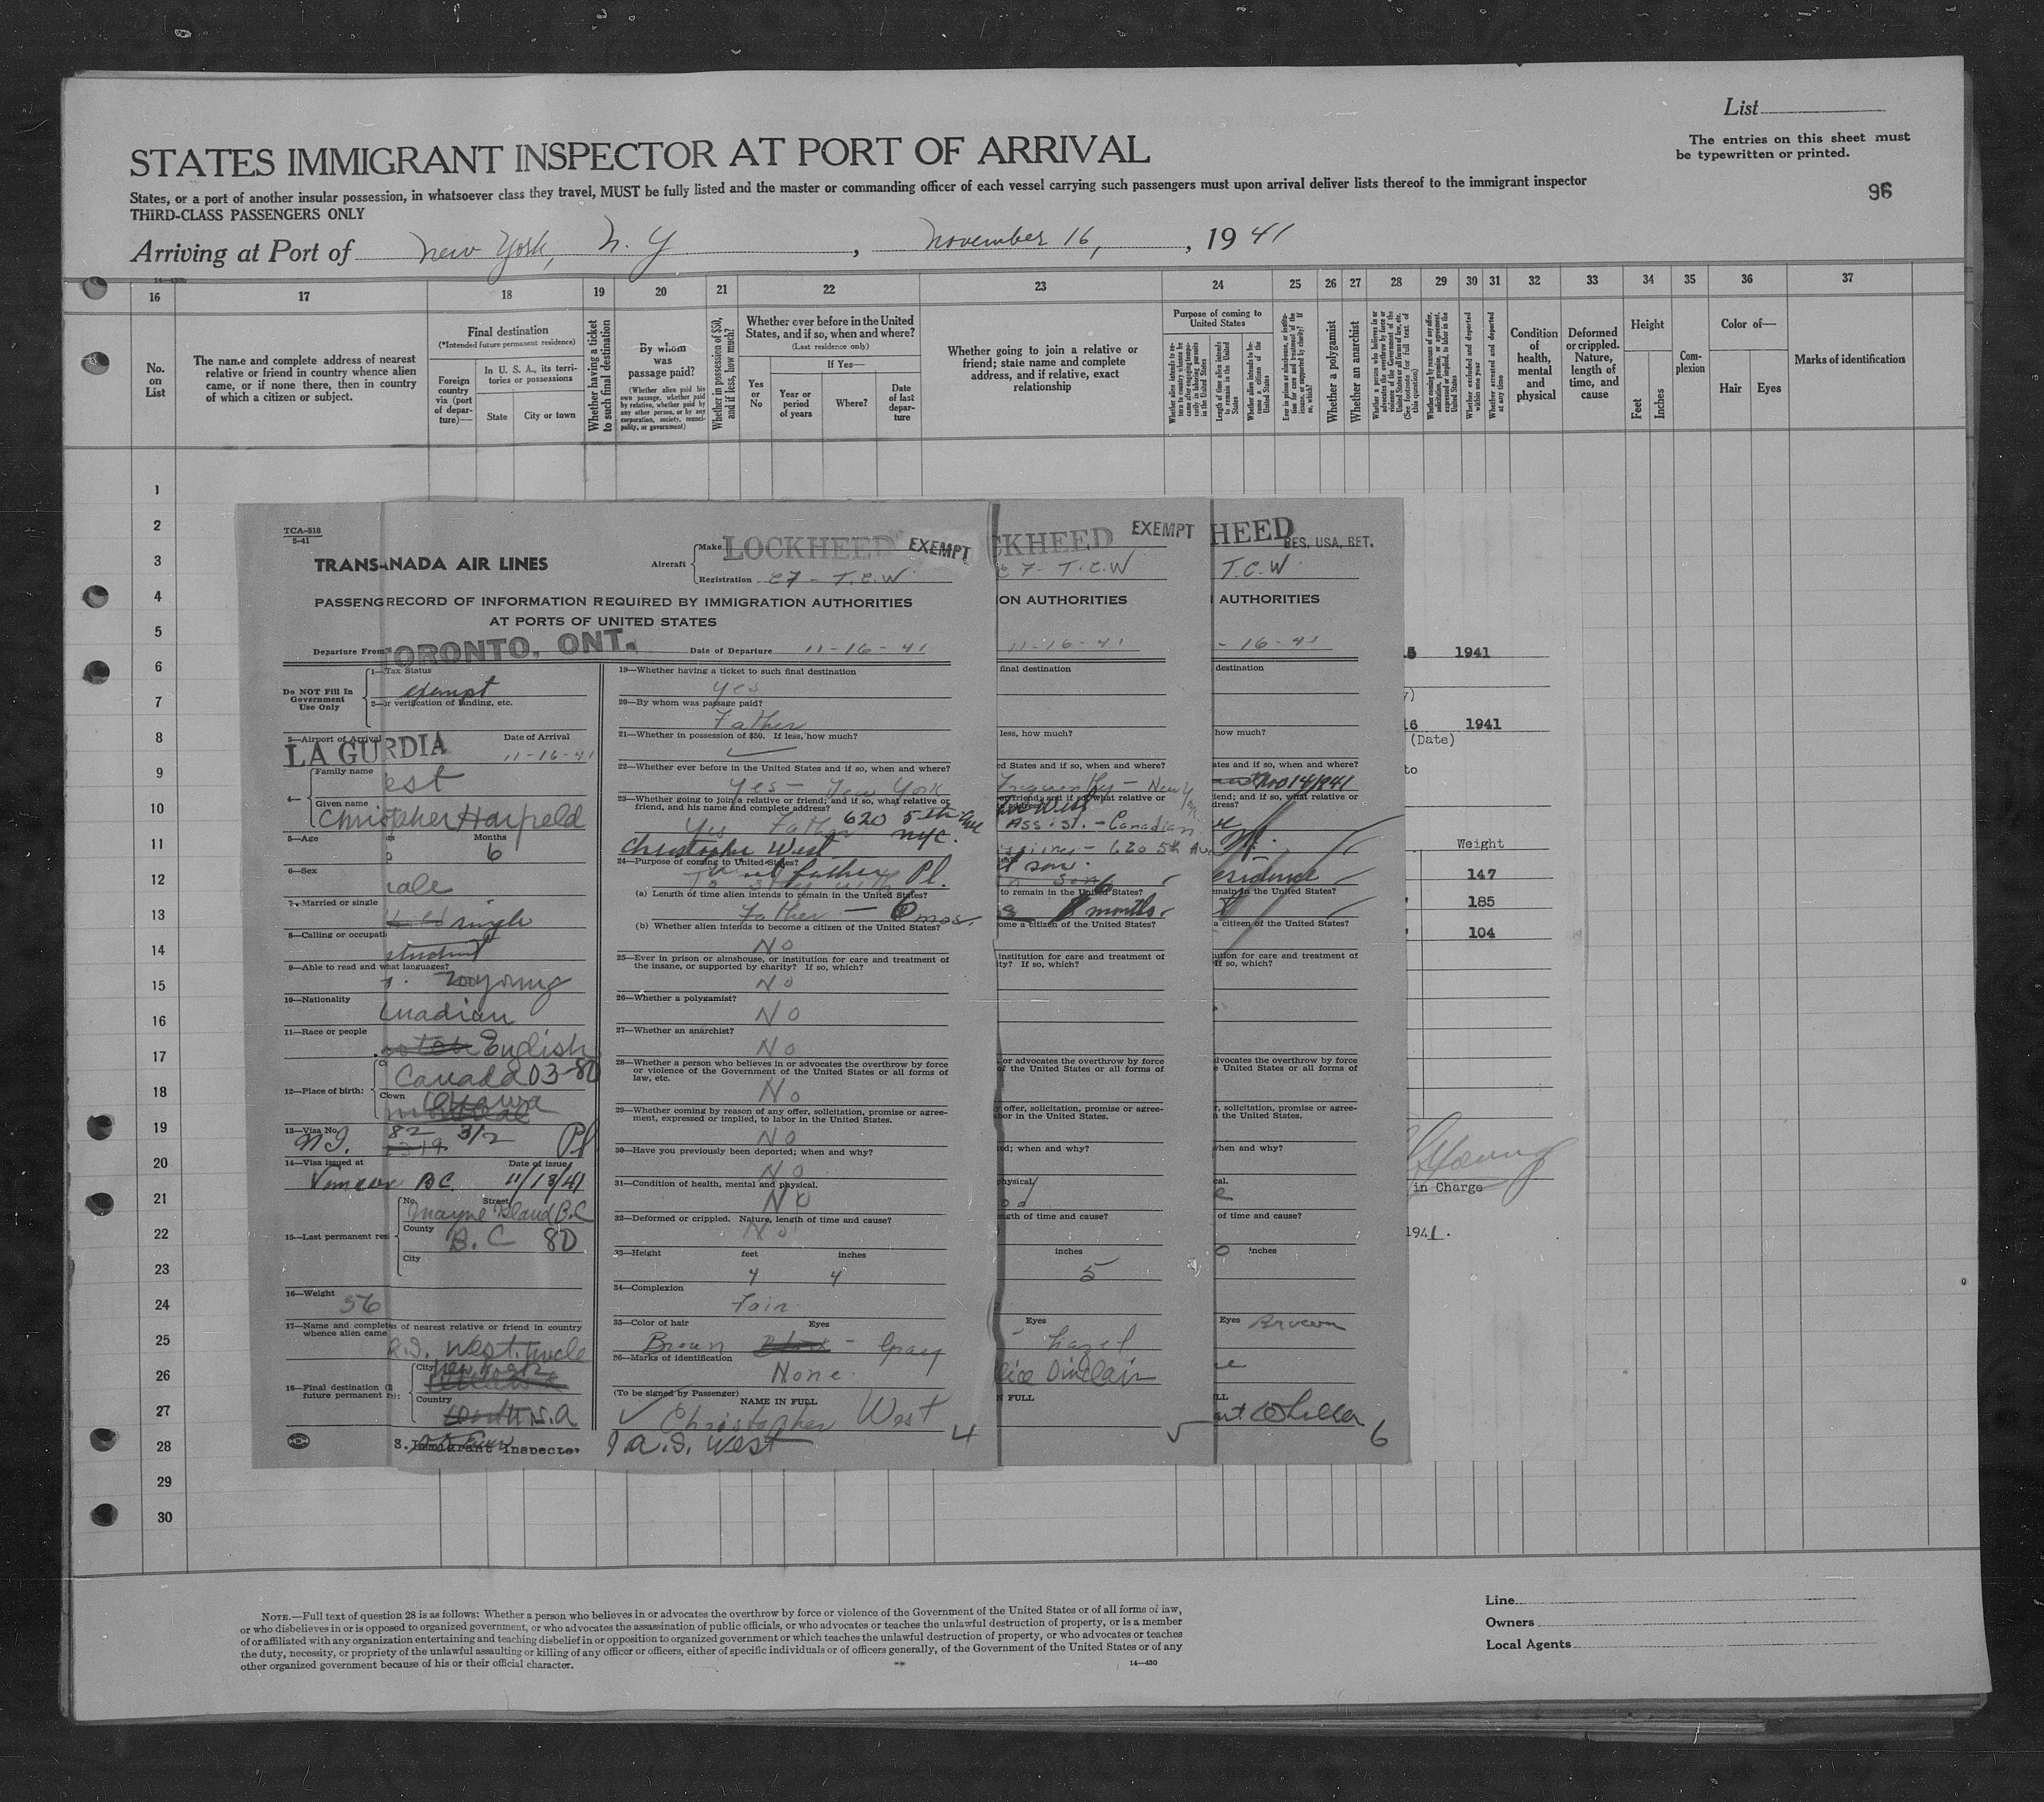 List
STATES IMMIGRANT INSPECTOR AT PORT OF ARRIVAL
The entries on this sheet must
be typewritten or printed.
States, or a port of another insular possession, in whatsoever class they travel, MUST be fully listed and the master or commanding officer of each vessel carrying such passengers must upon arrival deliver lists thereof to the immigrant inspector
THIRD-CLASS PASSENGERS ONLY
96
Arriving at Port of New York, N. Y , November 16, , 19 41
16 17 18 19 20 21 22 23 24 25 26 27 28 29 30 31 32 33 34 35 36 37
No. on List
The name and complete address of nearest relative or friend in country whence alien came, or if none there, then in country of which a citizen or subject.
Final destination
(*Intended future permanent residence)
Foreign country via (port of departure)—
In U. S. A., its territories or possessions
State
City or town
Whether having a ticket to such final destination
By whom was passage paid?
(Whether alien paid his own passage, whether paid by relative, whether paid by any other person, or by any corporation, society, municipality, or government)
Whether in possession of $50, and if less, how much?
Whether ever before in the United States, and if so, when and where?
(Last residence only)
Yes or No
If Yes—
Year or period of years
Where?
Date of last departure
Whether going to join a relative or friend; state name and complete address, and if relative, exact relationship
Purpose of coming to United States
Length of time alien intends to remain in the United States
Whether alien intends to become a citizen of the United States
Whether a polygamist
Whether an anarchist
Whether excluded and deported within one year
Whether arrested and deported at any time
Condition of health, mental and physical
Deformed or crippled. Nature, length of time, and cause
Height
Feet
Inches
Complexion
Color of—
Hair
Eyes
Marks of identification
1
2
3
4
5
6
7
8
9
10
11
12
13
14
15
16
17
18
19
20
21
22
23
24
25
26
27
28
29
30
TCA-518
5-41
TRANS-NADA AIR LINES
Aircraft
Make LOCKHEED EXEMPT
Registration C7 - T.C.W
PASSENG RECORD OF INFORMATION REQUIRED BY IMMIGRATION AUTHORITIES
AT PORTS OF UNITED STATES
Departure From ORONTO, ONT. Date of Departure 11-16-41
Do NOT Fill In
Government
Use Only
1—Tax Status
exempt
2—or verification of landing, etc.
3—Airport of Arrival Date of Arrival
LA GURDIA 11-16-41
4—
Family name
est
Given name
Christopher Harfield
5—Age Months
6
6—Sex
ale
7—Married or single
single
8—Calling or occupati
student
9—Able to read and what languages?
Too young
10—Nationality
nadian
11—Race or people
English
12—Place of birth:
Canada 03-80
town Ottawa
13—Visa No.
N.I. 82 3/2 Pl
14—Visa issued at Date of issue
B.C. 11/13/41
15—Last permanent res
No. Street
Mayne Island B.C
County
B.C 80
City
16—Weight
56
17—Name and completes of nearest relative or friend in country
whence alien came
West. Uncle
18—Final destination
future permanent
City
New York
Country
S.A
S. Immigrant Inspector
19—Whether having a ticket to such final destination
Yes
20—By whom was passage paid?
Father
21—Whether in possession of $50. If less, how much?
22—Whether ever before in the United States and if so, when and where?
Yes — New York
23—Whether going to join a relative or friend; and if so, what relative or
friend, and his name and complete address?
Yes Father 620 5th Ave
NYC.
Christopher West
24—Purpose of coming to United States?
To stay with father Pl.
(a) Length of time alien intends to remain in the United States?
Father — 6 mos.
(b) Whether alien intends to become a citizen of the United States?
No
25—Ever in prison or almshouse, or institution for care and treatment of
the insane, or supported by charity? If so, which?
No
26—Whether a polygamist?
No
27—Whether an anarchist?
No
28—Whether a person who believes in or advocates the overthrow by force
or violence of the Government of the United States or all forms of
law, etc.
No
29—Whether coming by reason of any offer, solicitation, promise or agree-
ment, expressed or implied, to labor in the United States.
No
30—Have you previously been deported; when and why?
No
31—Condition of health, mental and physical.
No
32—Deformed or crippled. Nature, length of time and cause?
No
33—Height feet inches
4 4
34—Complexion
Fair
35—Color of hair Eyes
Brown - Gray
36—Marks of identification
None
(To be signed by Passenger)
NAME IN FULL
Christopher West
A.S. West 4
CKHEED EXEMPT
C 7- T.C.W
ON AUTHORITIES
11-16-41
final destination
less, how much?
ed States and if so, when and where?
Frequently — New Y
Asst. - Canadian
620 5th Av
son
to remain in the United States?
months
ome a citizen of the United States?
institution for care and treatment of
ity? If so, which?
or advocates the overthrow by force
of the United States or all forms of
y offer, solicitation, promise or agree-
bor in the United States.
ed; when and why?
physical
ngth of time and cause?
inches
5
Eyes
hazel
lice Sinclair
N FULL
5
HEED RES. USA, RET.
T.C.W
AUTHORITIES
- 16-41
destination
how much?
ates and if so, when and where?
Nov 14/1941
iend; and if so, what relative or
dress?
esidence
emain in the United States?
a citizen of the United States?
tution for care and treatment of
If so, which?
dvocates the overthrow by force
e United States or all forms of
r, solicitation, promise or agree-
n the United States.
when and why?
cal.
of time and cause?
0 inches
Eyes Brown
LL
6
1941
16 1941
(Date)
to
Weight
147
185
104
Young
in Charge
1941.
NOTE.—Full text of question 28 is as follows: Whether a person who believes in or advocates the overthrow by force or violence of the Government of the United States or of all forms of law,
or who disbelieves in or is opposed to organized government, or who advocates the assassination of public officials, or who advocates or teaches the unlawful destruction of property, or is a member
of or affiliated with any organization entertaining and teaching disbelief in or opposition to organized government or which teaches the unlawful destruction of property, or who advocates or teaches
the duty, necessity, or propriety of the unlawful assaulting or killing of any officer or officers, either of specific individuals or of officers generally, of the Government of the United States or of any
other organized government because of his or their official character.
14—430
Line
Owners
Local Agents